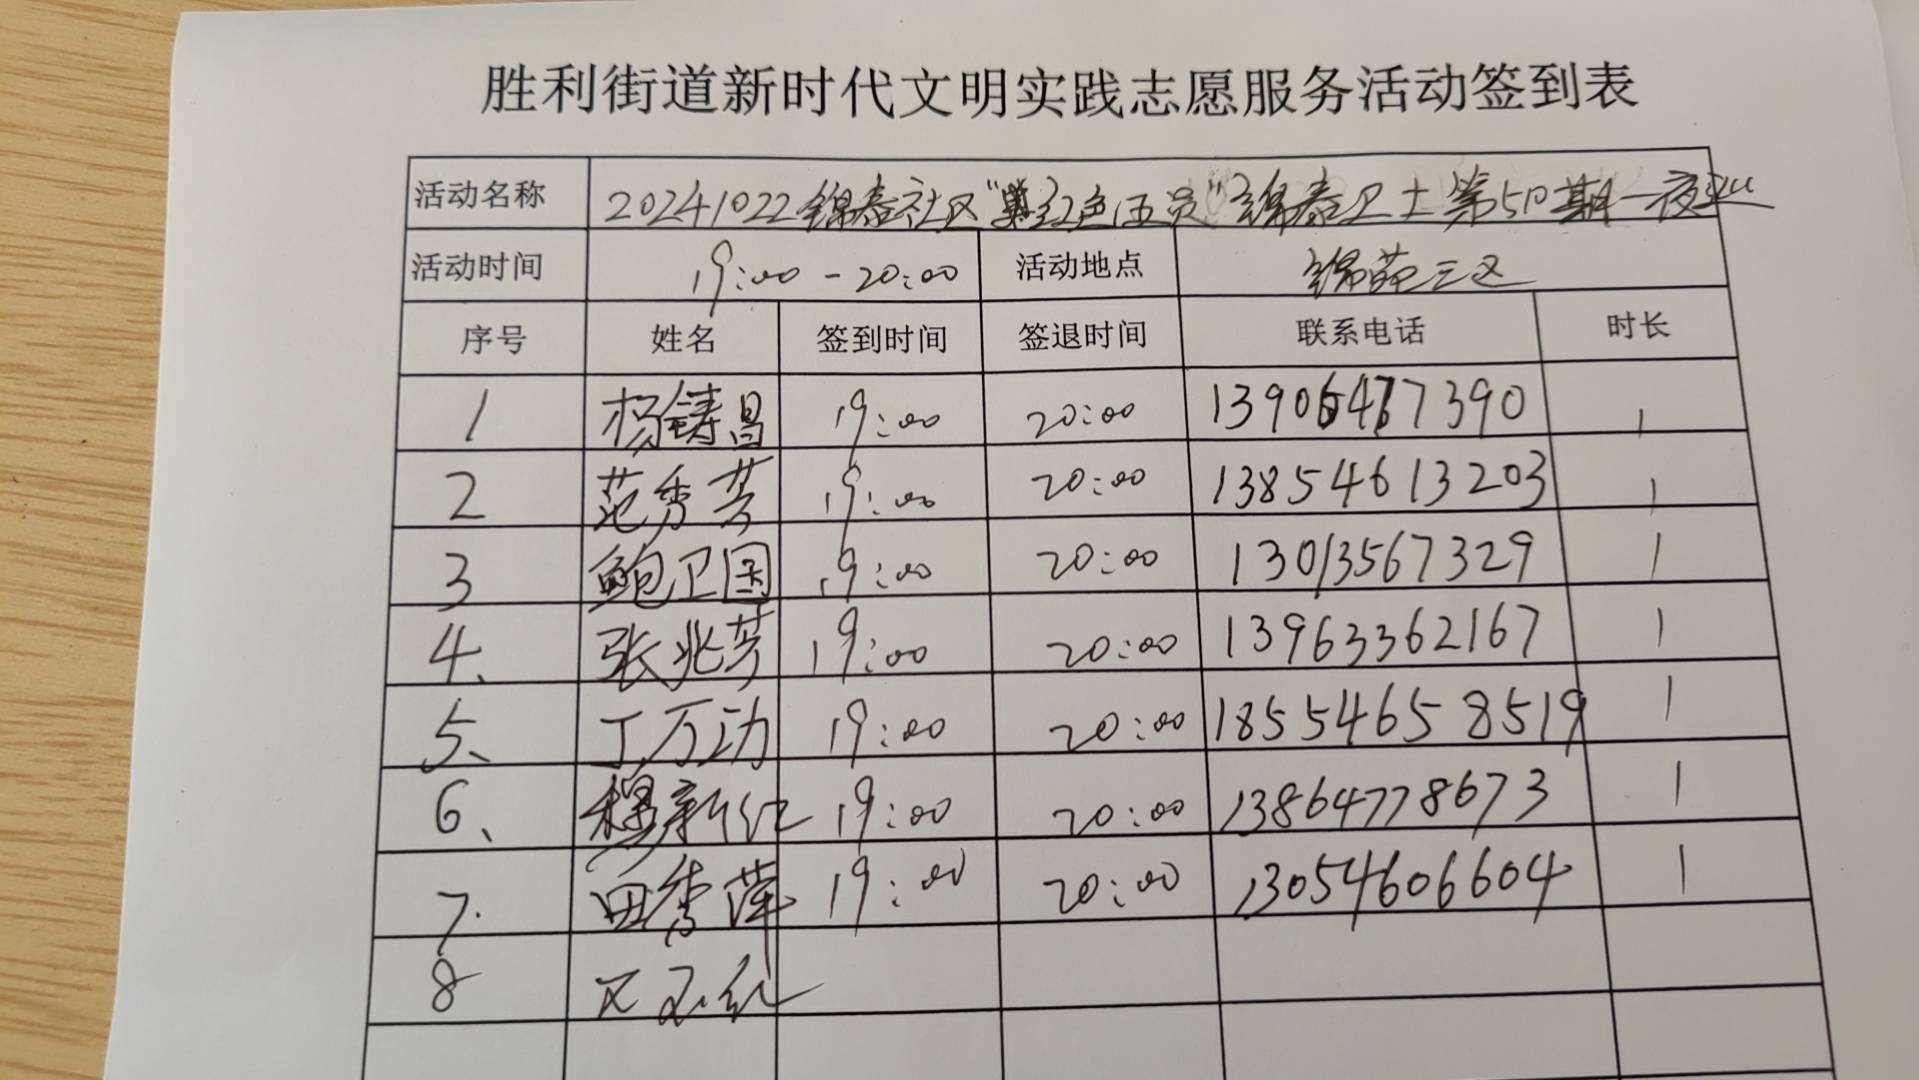 胜利街道新时代文明实践志愿服务活动签到表
活动名称 20241022锦泰社区“红色伍员”锦泰卫士第50期一夜巡
活动时间 19:00-20:00 活动地点 锦苑三区
序号 姓名 签到时间 签退时间 联系电话 时长
1 杨铸昌 19:00 20:00 13906477390 1
2 范秀芳 19:00 20:00 13854613203 1
3 鲍卫国 19:00 20:00 13013567329 1
4、 张兆芳 19:00 20:00 13963362167 1
5、 丁万动 19:00 20:00 18554658519 1
6、 穆新红 19:00 20:00 13864778673 1
7. 田秀萍 19:00 20:00 13054606604 1
8 红